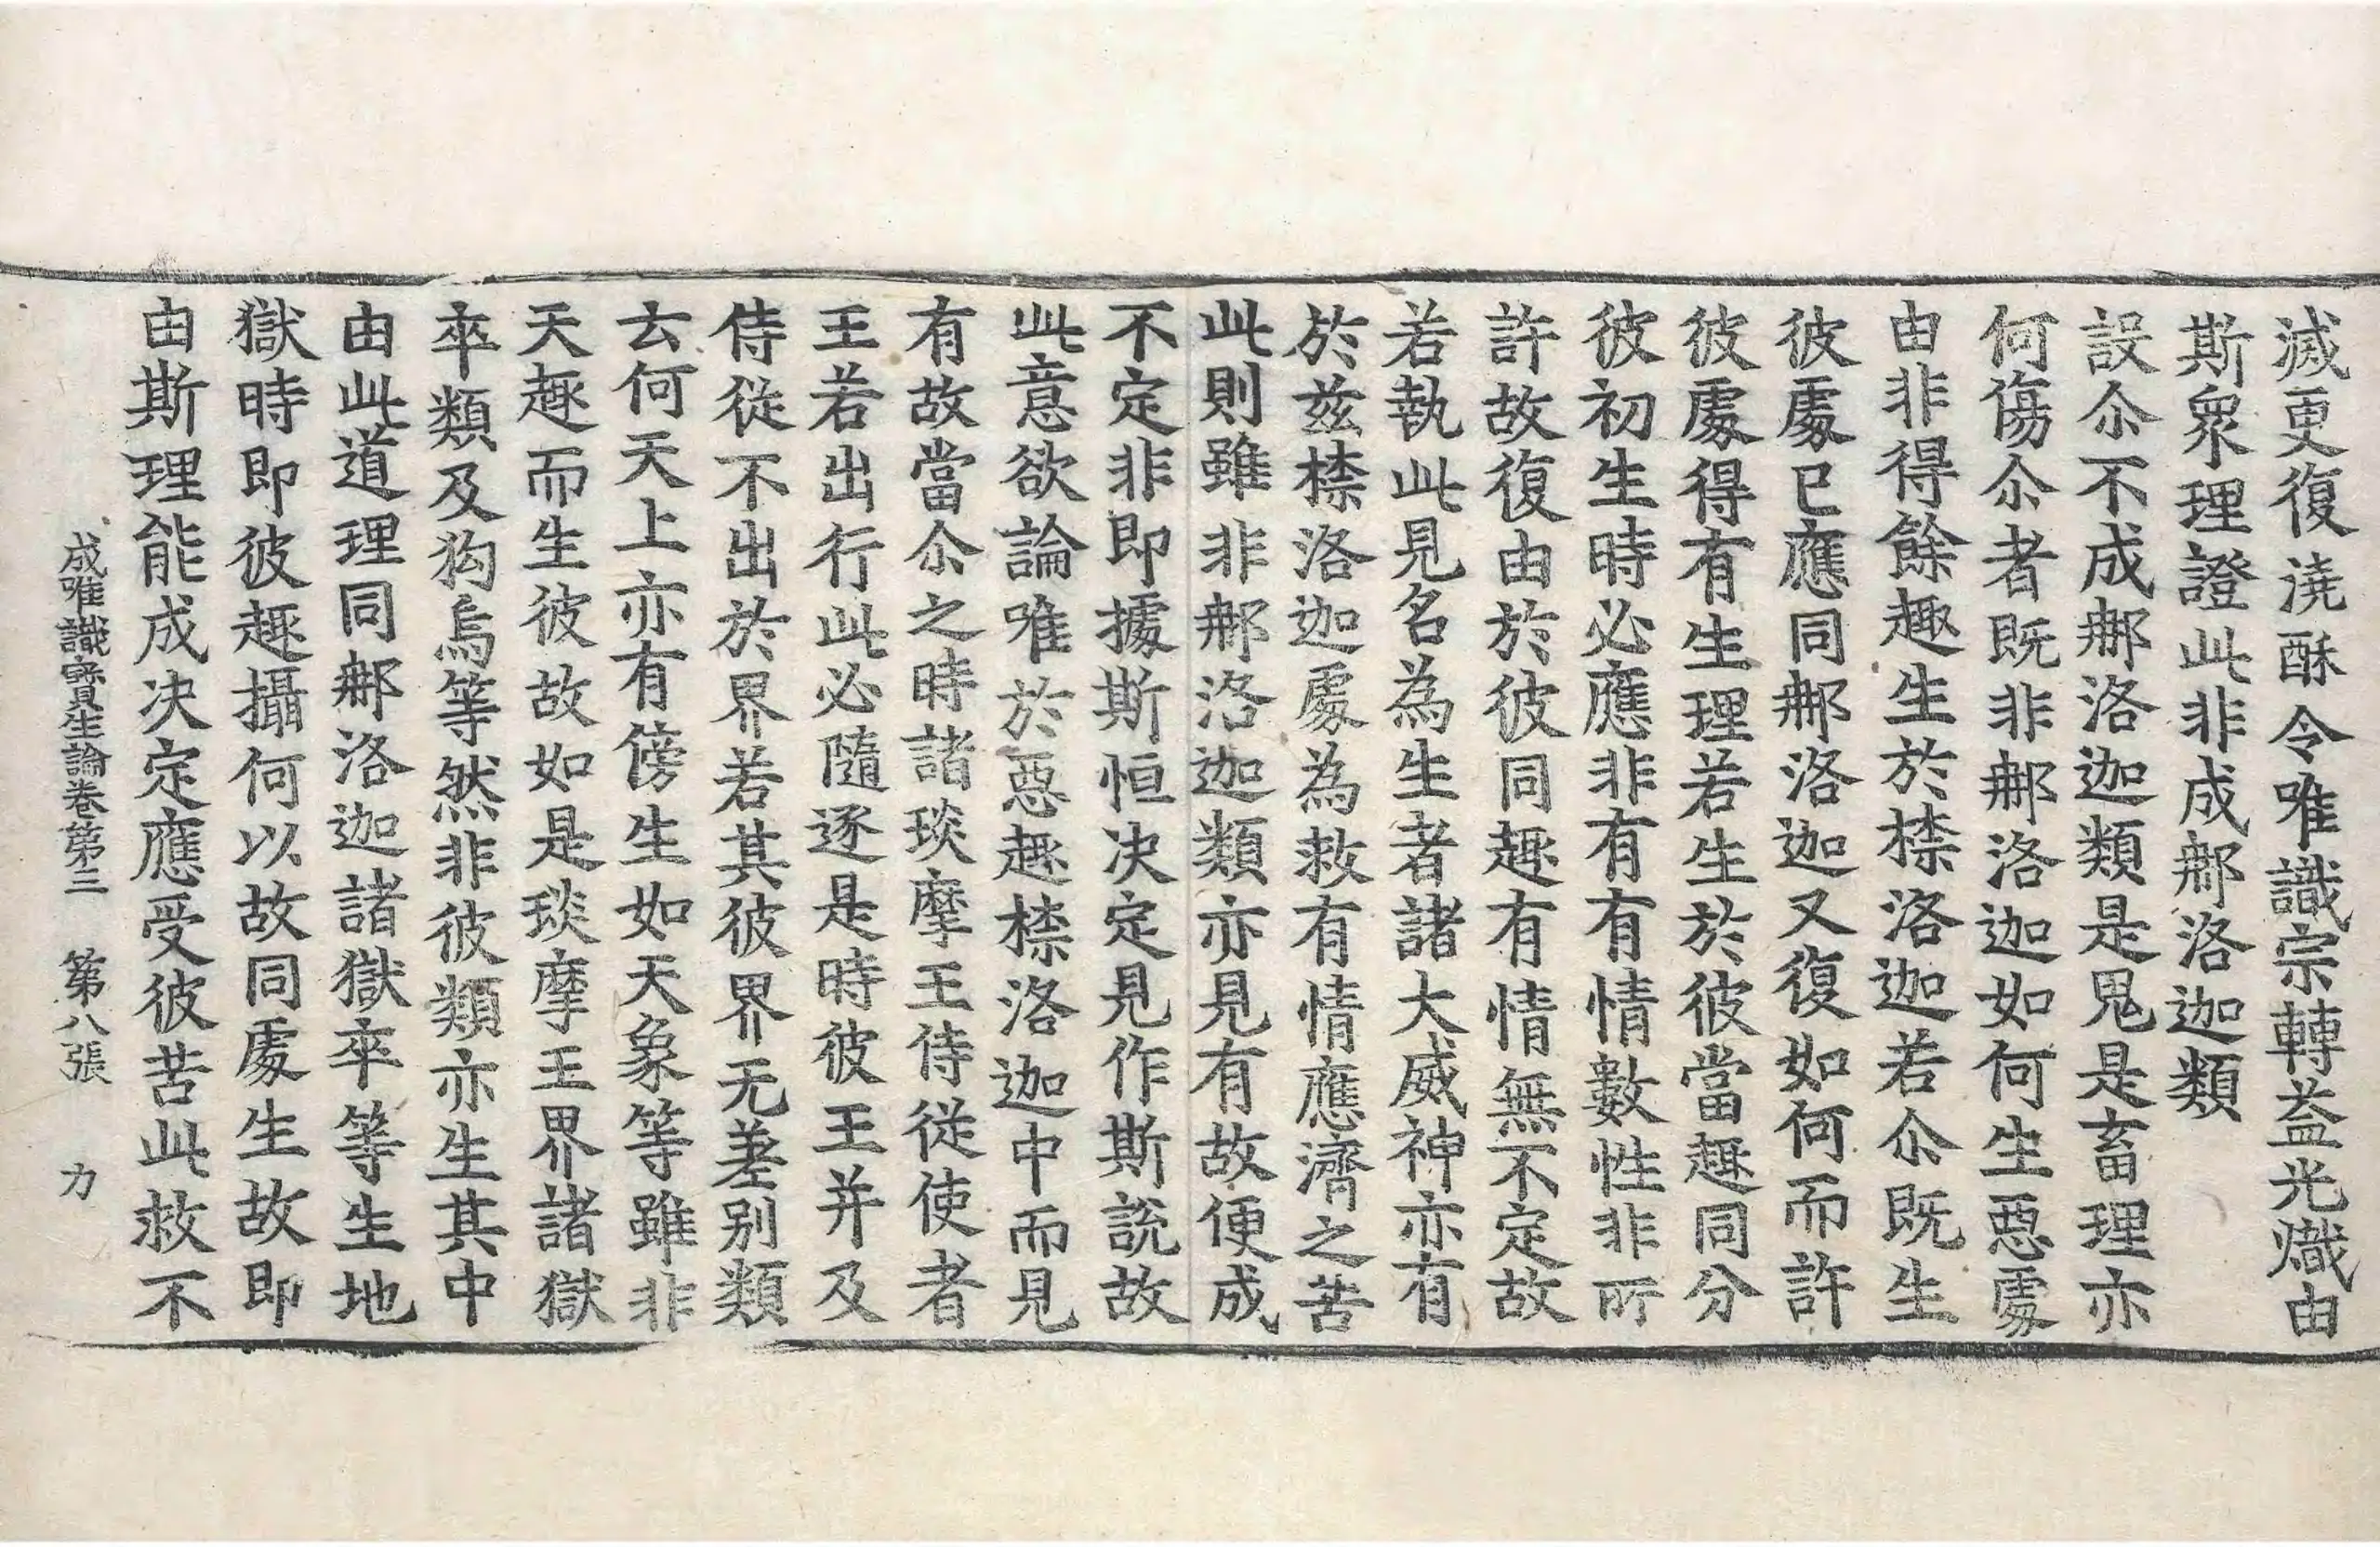 滅更復澆酥令唯識宗轉益光熾由
斯衆理證此非成那洛迦類
設尒不成那洛迦類是鬼是畜理亦
何傷尒者既非那洛迦如何生惡處
由非得餘趣生於㮈洛迦若尒既生
彼處已應同那洛迦又復如何而許
彼處得有生理若生於彼當趣同分
彼初生時必應非有有情數性非所
許故復由於彼同趣有情無不定故
若執此見名為生者諸大威神亦有
於茲㮈洛迦處為救有情應濟之苦
此則雖非那洛迦類亦見有故便成
不定非即據斯恒决定見作斯說故
此意欲論唯於惡趣㮈洛迦中而見
有故當尒之時諸琰摩王侍從使者
王若出行此必隨逐是時彼王并及
侍從不出於界若其彼界无差别類
云何天上亦有傍生如天象等雖非
天趣而生彼故如是琰摩王界諸獄
卒類及狗烏等然非彼類亦生其中
由此道理同那洛迦諸獄卒等生地
獄時即彼趣攝何以故同處生故即
由斯理能成决定應受彼苦此救不
成唯識寶生論卷第三 第八張 力